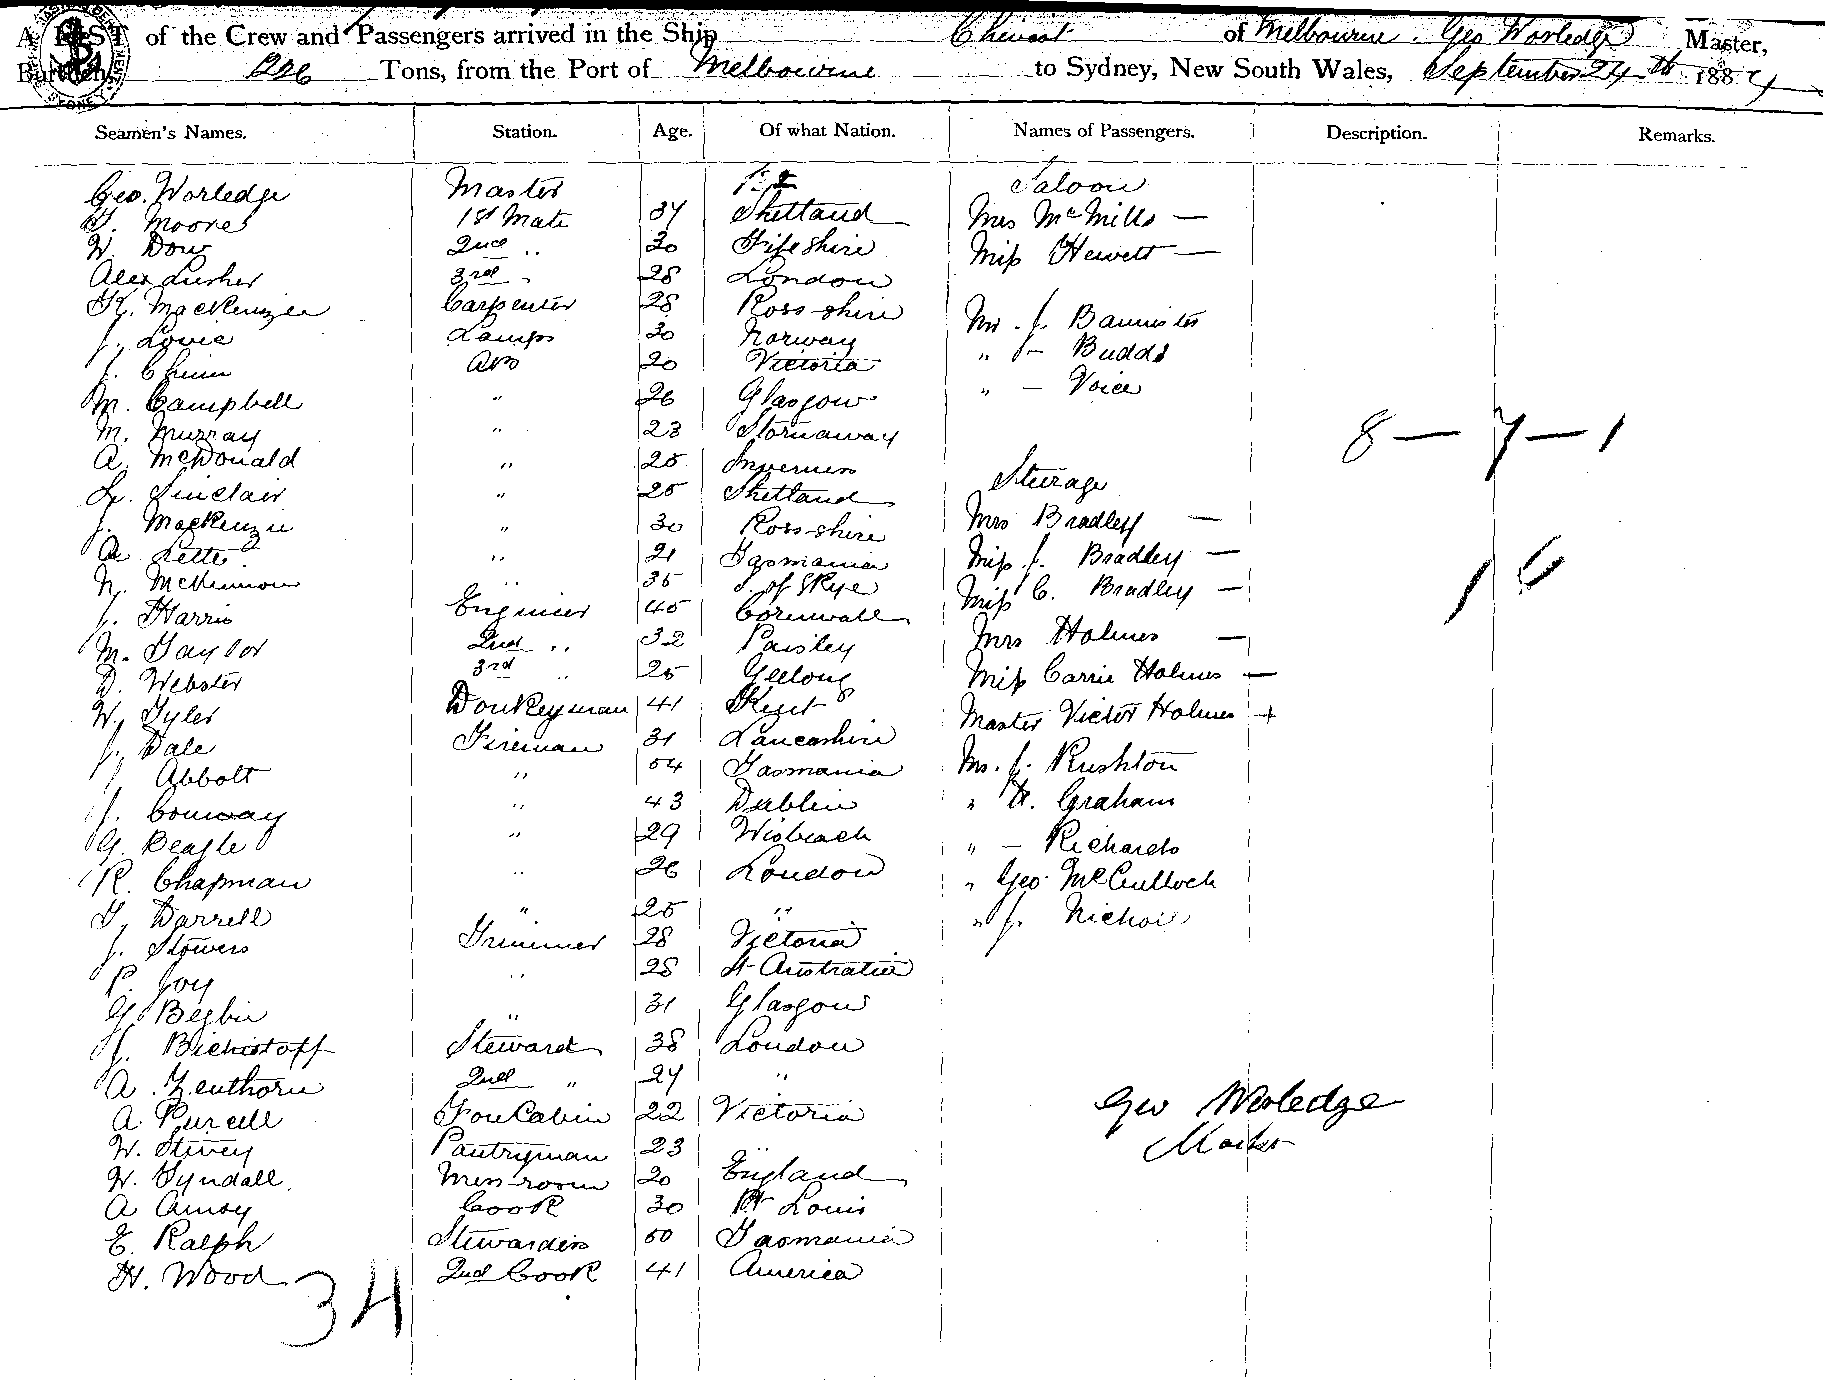 A LIST of the Crew and Passengers arrived in the Ship Cheviot of Melbourne. Geo Worledge Master,
Burthen 1226 Tons, from the Port of Melbourne to Sydney, New South Wales, September 24th 1887
Seamen's Names. Station. Age. Of what Nation. Names of Passengers. Description. Remarks.
Geo. Worledge Master Saloon
T. Moore 1st Mate 37 Shetland Mrs McMills —
W. Dow 2nd .. 30 Fifeshire Miss Hewett —
Alex Lusher 3rd .. 28 London
K. MacKenzie Carpenter 28 Ross-shire Mr. J. Bannister
J. Lovie Lamps 30 Norway " — Budds
J. Chinn AB 20 Victoria " — Voice
M. Campbell " 26 Glasgow
M. Murray " 23 Stornaway 8 — 7 — 1
A. McDonald " 25 Inverness Steerage
L. Sinclair " 25 Shetland
J. MacKenzie " 30 Ross-shire Mrs Bradley —
A. Lette " 21 Tasmania Miss J. Bradley —
N. McKinnon " 35 I. of Skye Miss C. Bradley — 16
J. Harris Engineer 45 Cornwall
M. Taylor 2nd .. 32 Paisley Mrs Holmes —
D. Webster 3rd .. 25 Geelong Miss Carrie Holmes —
W. Tyler Donkeyman 41 Kent Master Victor Holmes +
J. Dale Fireman 31 Lancashire
J. Abbott " 54 Tasmania Mr. J. Rushton
J. Conway " 43 Dublin " Graham
G. Beagle " 29 Wisbeach " — Richards
R. Chapman " 26 London " Geo. McCulloch
T. Darrell " 25 " " J. Nichol
J. Stowers Trimmer 28 Victoria
P. Joy " 28 Australia
G. Begbie " 31 Glasgow
J. Steward 38 London
A. Zenthorn 2nd " 27 "
A. Purcell Fore Cabin 22 Victoria Geo Worledge
W. Stivey Pantryman 23 " Master
W. Tyndall. Mess-room 20 England
A Amoy Cook 30 Pt Louis
E. Ralph Stewardess 50 Tasmania
H. Wood 2nd Cook 41 America
34